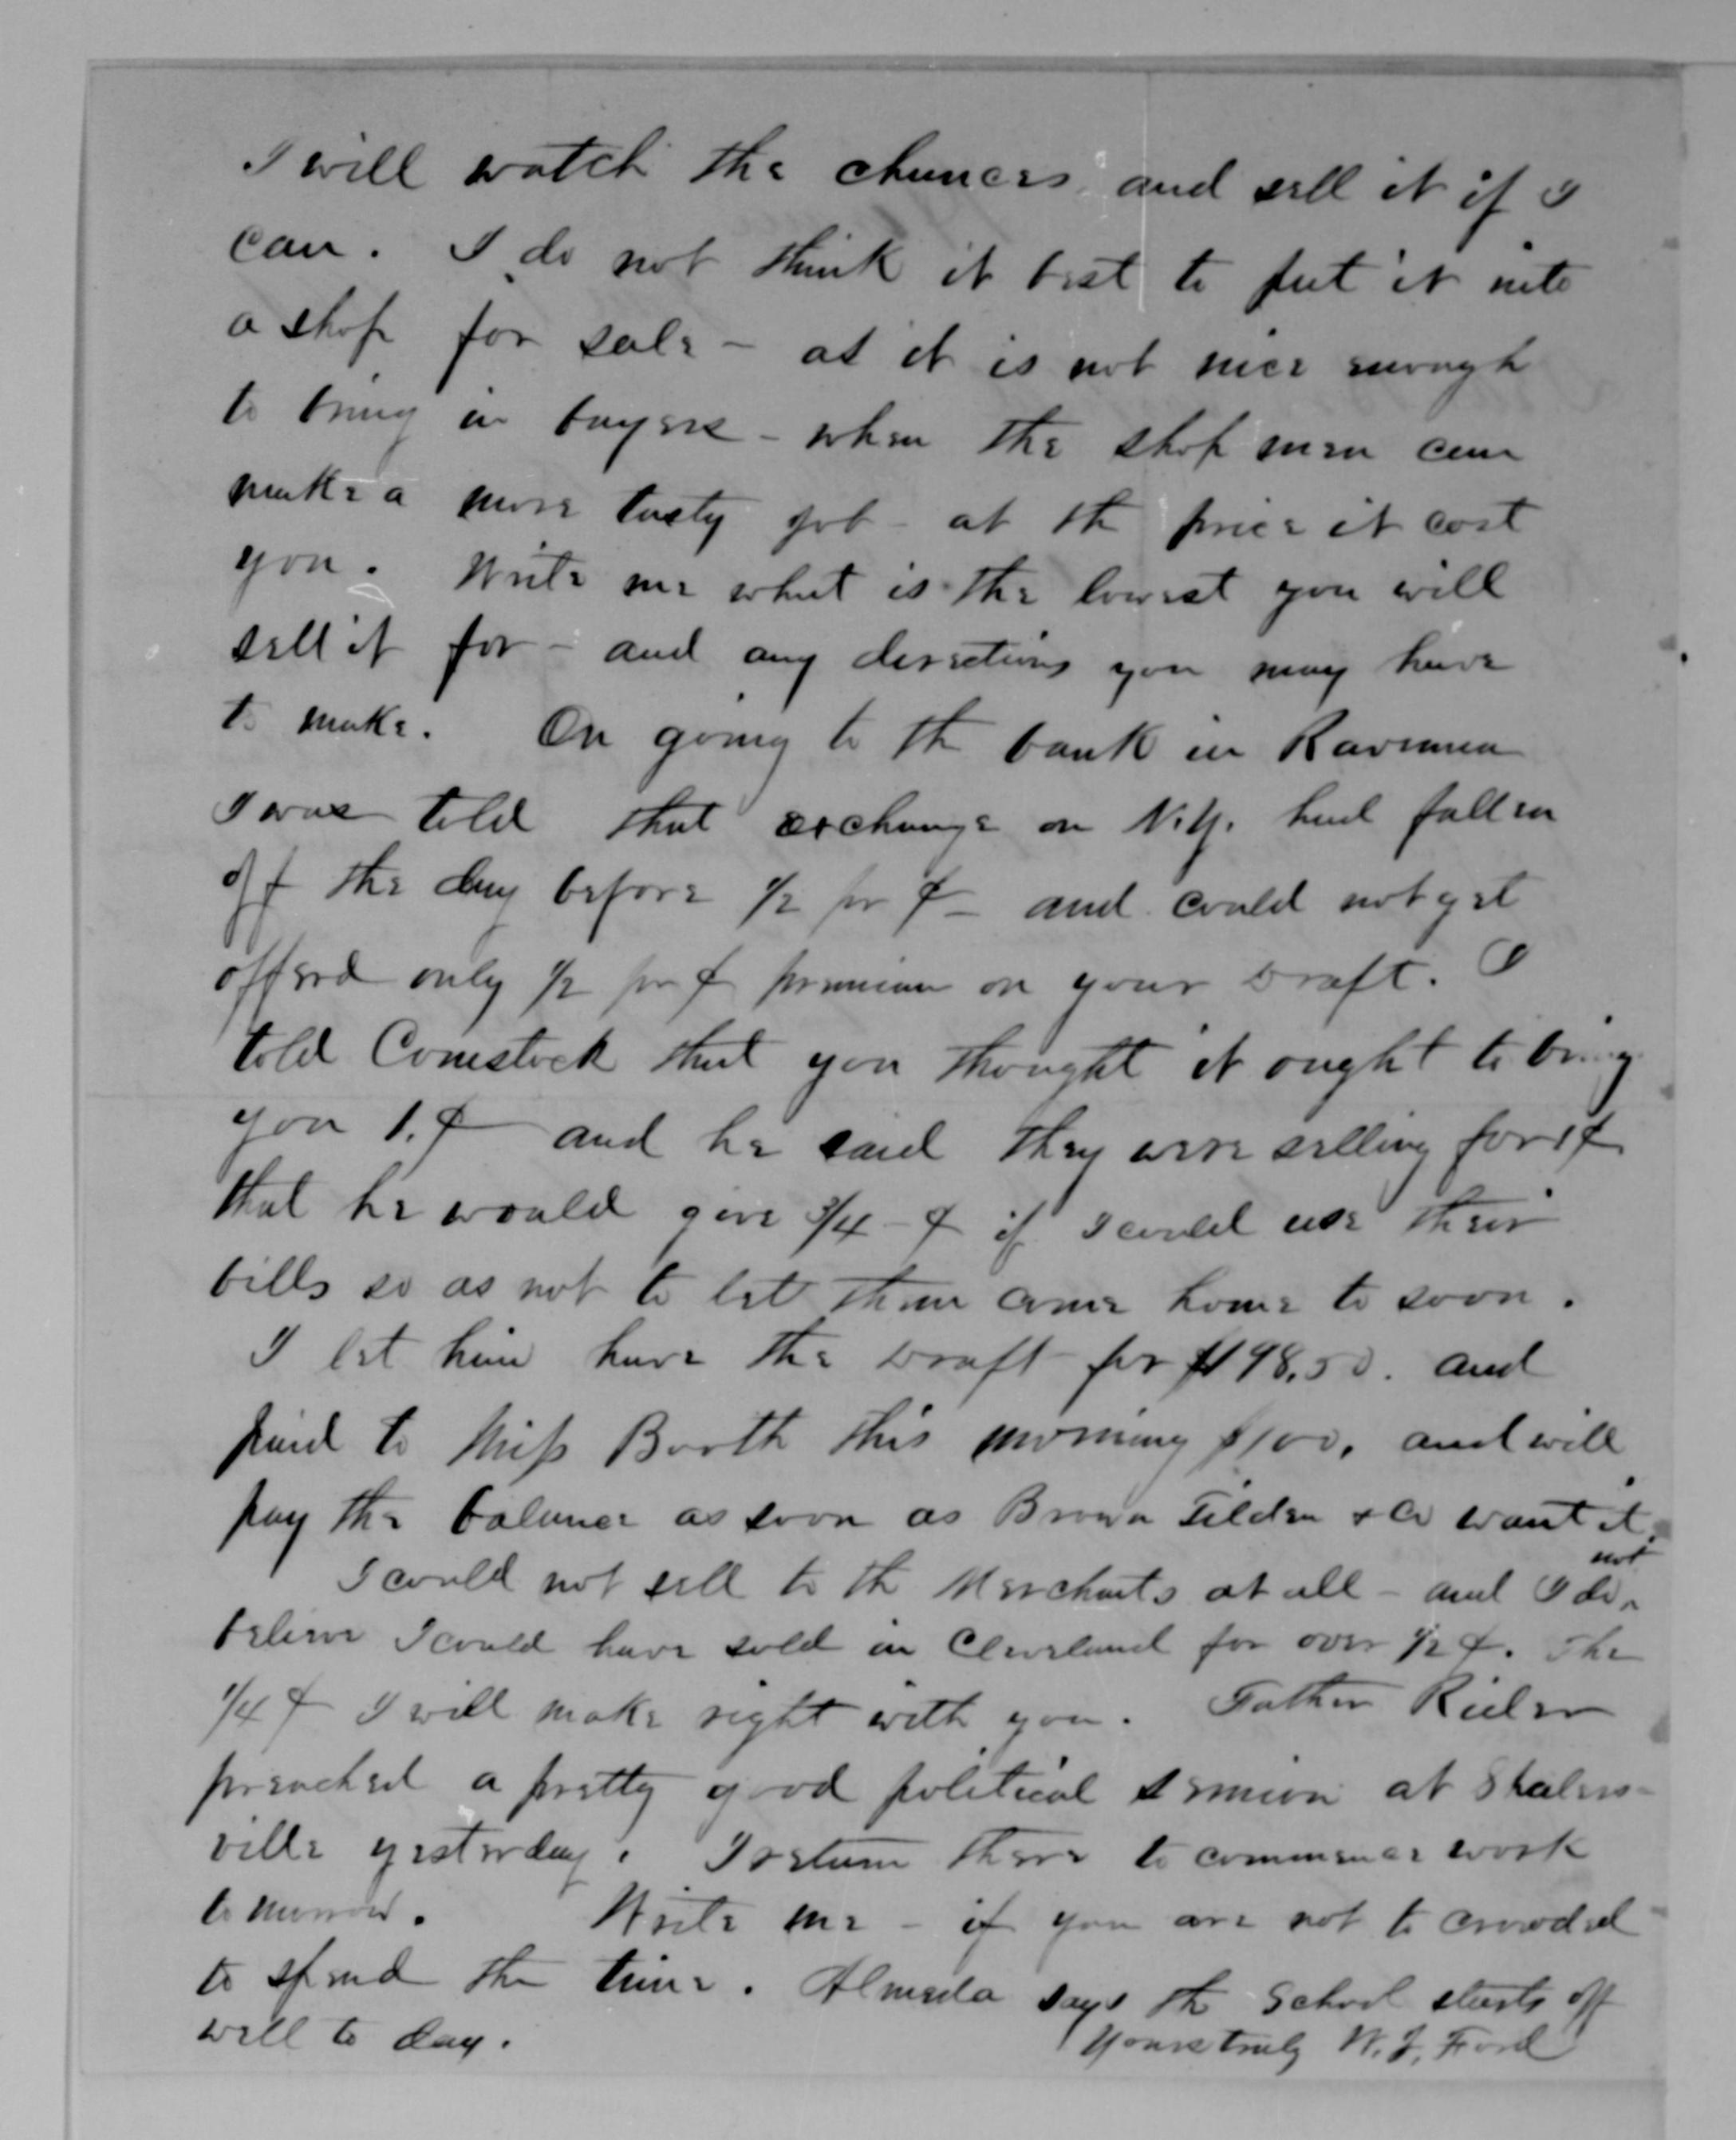 I will watch the chances and sell it if I
can. I do not think it best to put it into
a shop for sale - as it is not nice enough
to bring in buyers - when the shop men can
make a more tasty job - at the price it cost
you. Write me what is the lowest you will
sell it for - and any directions you may have
to make. On going to the bank in Ravenna
I was told that exchange on N.Y. had fallen
off the day before 1/2 pr ¢ - and could not get
offerd only 1/2 pr ¢ premium on your Draft. I
told Comstock that you thought it ought to bring
you 1. ¢ and he said they were selling for 1 ¢
that he would give 3/4 - ¢ if I could use their
bills so as not to let them come home to soon.
I let him have the Draft for $198.50. and
paid to Miss Booth this morning $100. and will
pay the balance as soon as Brown Tilden & Co want it.
I could not sell to the Merchants at all - and I do not
believe I could have sold in Cleveland for over 1/2 ¢. The
1/4 ¢ I will make right with you. Father
preached a pretty good political sermon at Shalers-
ville yesterday. I return there to commence work
to morrow. Write me - if you are not to crowded
to spend the time. Almeda says the School starts off
well to day.
Yours truly W. J. Ford